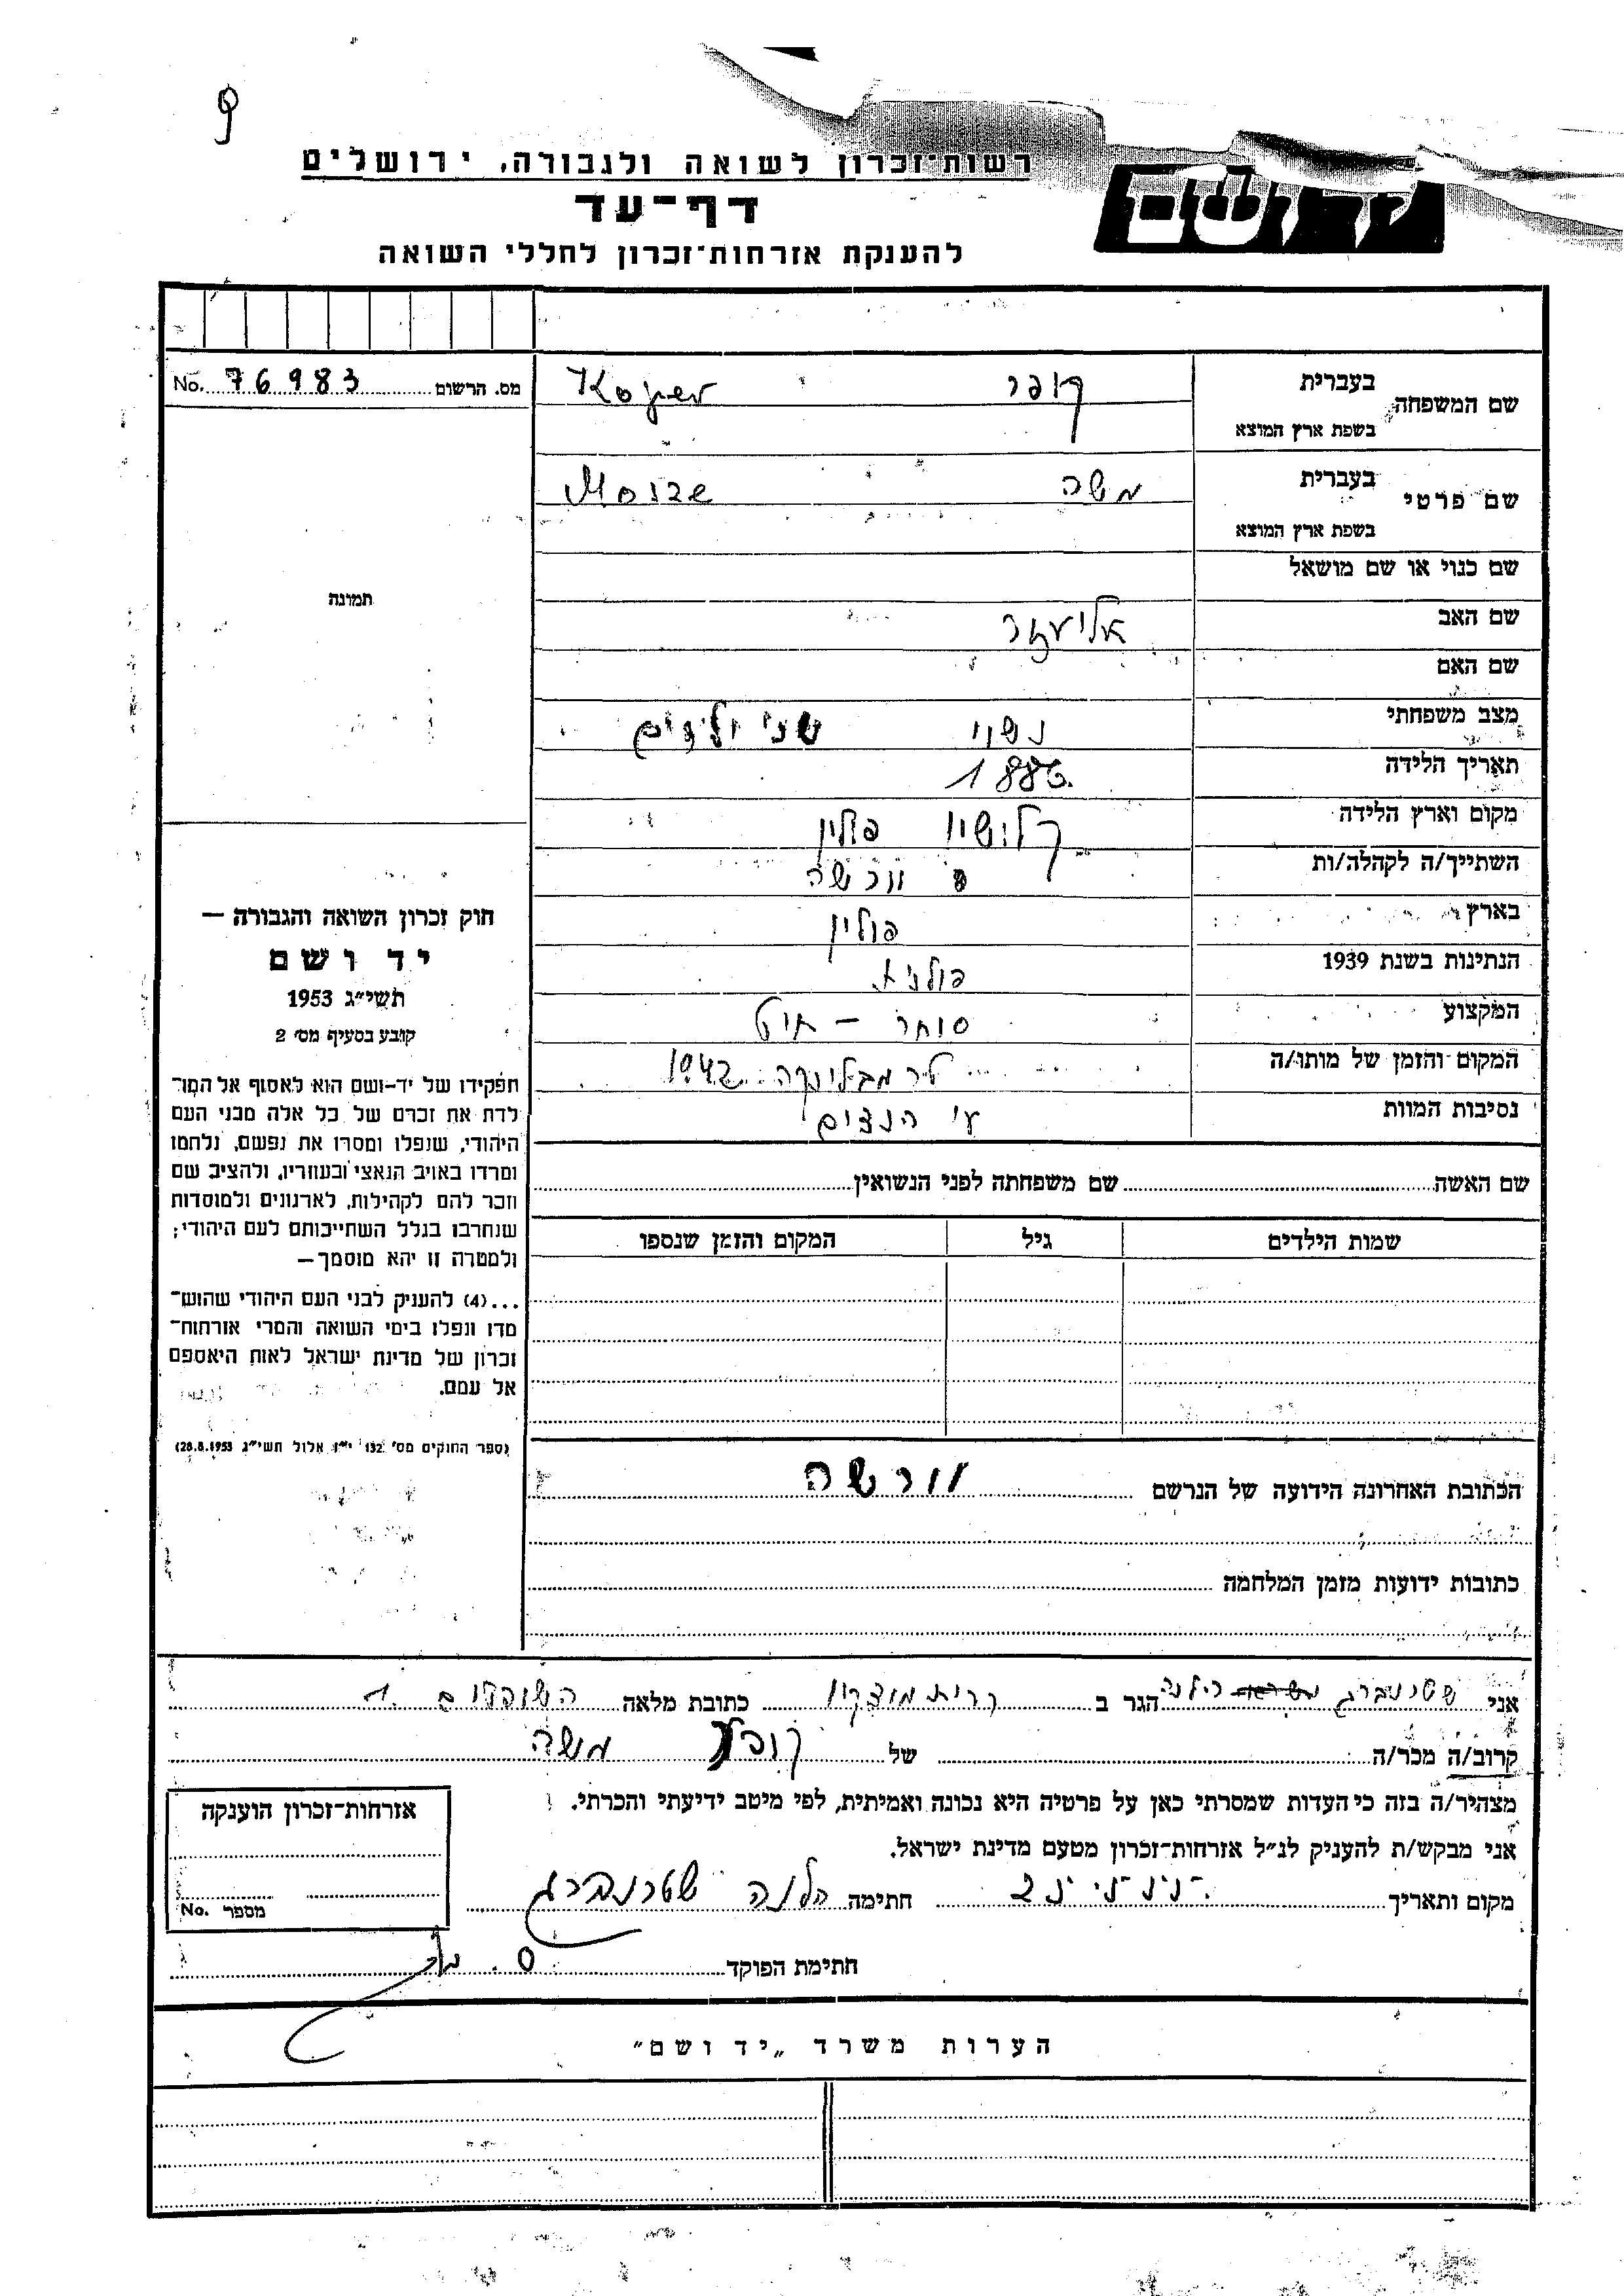 9
רשות-זכרון לשואה ולגבורה, ירושלים
דף-עד
להענקת אזרחות-זכרון לחללי השואה
מס. הרשום 76983 No.
שם המשפחה בעברית קופר Koper
בשפת ארץ המוצא
שם פרטי בעברית משה
בשפת ארץ המוצא
שם כנוי או שם מושאל
תמונה
שם האב אליעזר
שם האם
מצב משפחתי נשוי שני ילדים
תאריך הלידה 1886
מקום וארץ הלידה קלושין פולין
השתייך/ה לקהלה/ות וורשה
בארץ פולין
הנתינות בשנת 1939 פולנית
המקצוע סוחר –
המקום והזמן של מותו/ה טרמבלינקה 1942
נסיבות המוות ע״י הנצים
חוק זכרון השואה והגבורה —
יד ושם
תשי״ג 1953
קובע בסעיף מס׳ 2
תפקידו של יד-ושם הוא לאסוף אל המו־
לדת את זכרם של כל אלה מבני העם
היהודי, שנפלו ומסרו את נפשם, נלחמו
ומרדו באויב הנאצי ובעוזריו, ולהציב שם
וזכר להם לקהילות, לארגונים ולמוסדות
שנחרבו בגלל השתייכותם לעם היהודי;
ולמטרה זו יהא מוסמך —
...(4) להעניק לבני העם היהודי שהוש־
מדו ונפלו בימי השואה והמרי אזרחות־
זכרון של מדינת ישראל לאות היאספם
אל עמם.
(ספר החוקים מס׳ 132 י״ז אלול תשי״ג 28.8.1953)
שם האשה שם משפחתה לפני הנשואין
שמות הילדים גיל המקום והזמן שנספו
הכתובת האחרונה הידועה של הנרשם וורשה
כתובות ידועות מזמן המלחמה
אני שטרנברג הילנה הגר ב קרית מוצקין כתובת מלאה
קרוב/ה מכר/ה של קופר משה
מצהיר/ה בזה כי העדות שמסרתי כאן על פרטיה היא נכונה ואמיתית, לפי מיטב ידיעתי והכרתי.
אני מבקש/ת להעניק לנ״ל אזרחות-זכרון מטעם מדינת ישראל.
מקום ותאריך חתימה הלנה שטרנברג
חתימת הפוקד
אזרחות-זכרון הוענקה
מספר No.
הערות משרד „יד ושם״